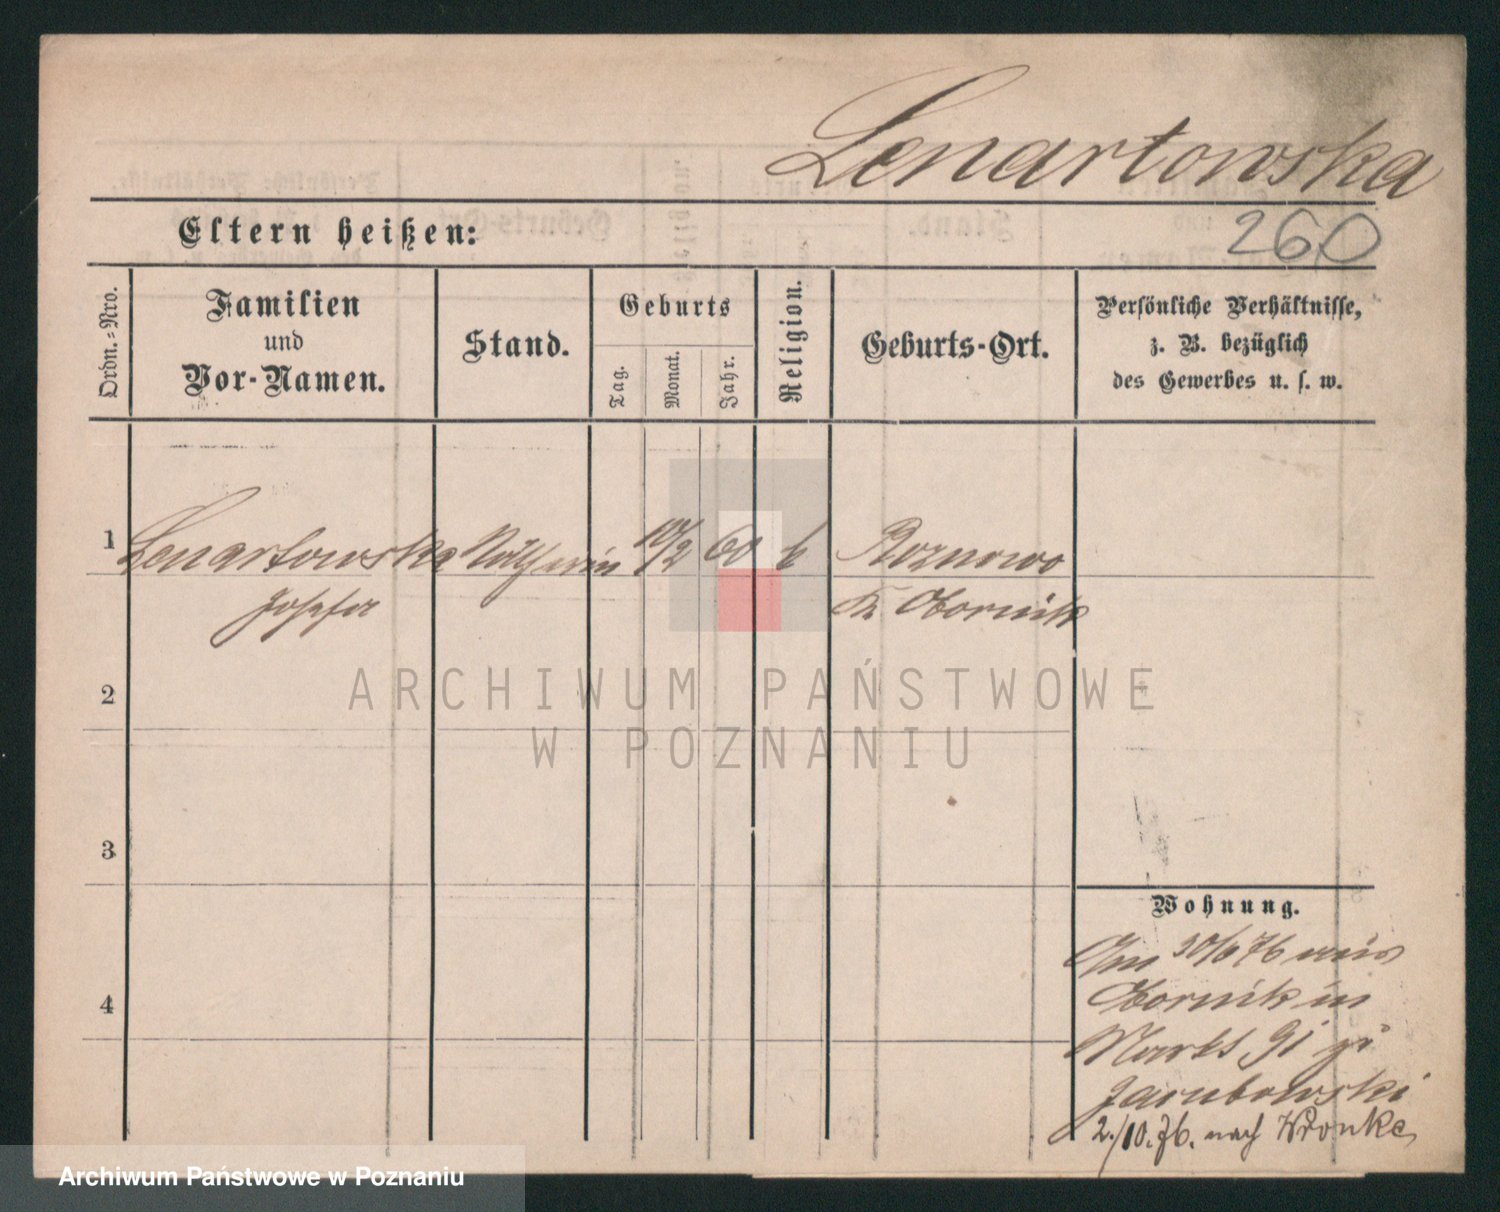 Lenartowska
260
Eltern heißen:
Ordn.-Nro.
Familien
und
Vor-Namen.
Stand.
Geburts
Tag.
Monat.
Jahr.
Religion.
Geburts-Ort.
Persönliche Verhältnisse,
z. B. bezüglich
des Gewerbes u. s. w.
1
Lenartowska
Josefa
Nätherin
10/2
60
k
Roznowo
Kr. Obornik
2
3
4
Wohnung.
Am 30/6 76 aus
Obornik in
Markt 91 zu
Jarubowski
2./10.76. nach Wronke
ARCHIWUM PAŃSTWOWE
W POZNANIU
Archiwum Państwowe w Poznaniu